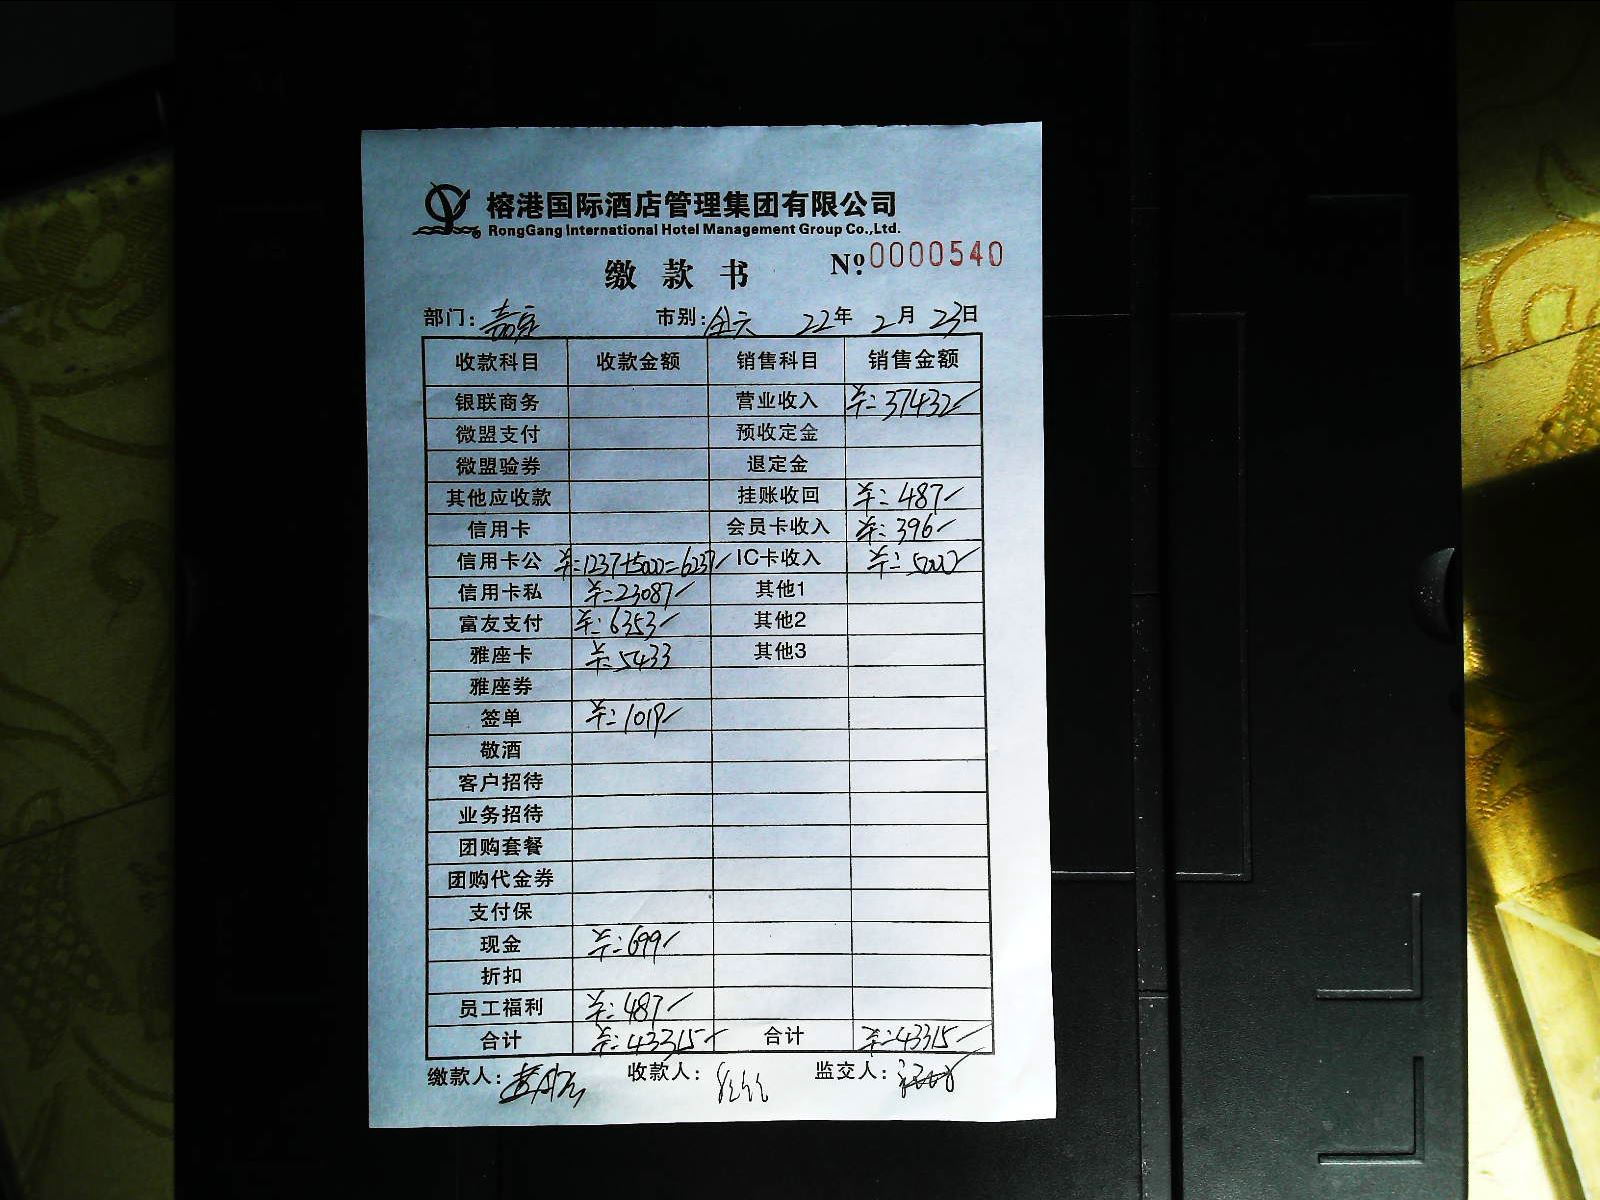 榕港国际酒店管理集团有限公司
RongGang International Hotel Management Group Co.,Ltd.
缴款书 №0000540
部门: 市别:全天 22年2月23日
收款科目 收款金额 销售科目 销售金额
银联商务 营业收入 ¥:37432
微盟支付 预收定金
微盟验券 退定金
其他应收款 挂账收回 ¥:487
信用卡 会员卡收入 ¥:396
信用卡公 ¥:1237+5000=6237 IC卡收入 ¥:5000
信用卡私 ¥:23087 其他1
富友支付 ¥:6353 其他2
雅座卡 ¥:5433 其他3
雅座券
签单 ¥:1019
敬酒
客户招待
业务招待
团购套餐
团购代金券
支付保
现金 ¥:699
折扣
员工福利 ¥:487
合计 ¥:43315 合计 ¥:43315
缴款人: 收款人: 监交人: